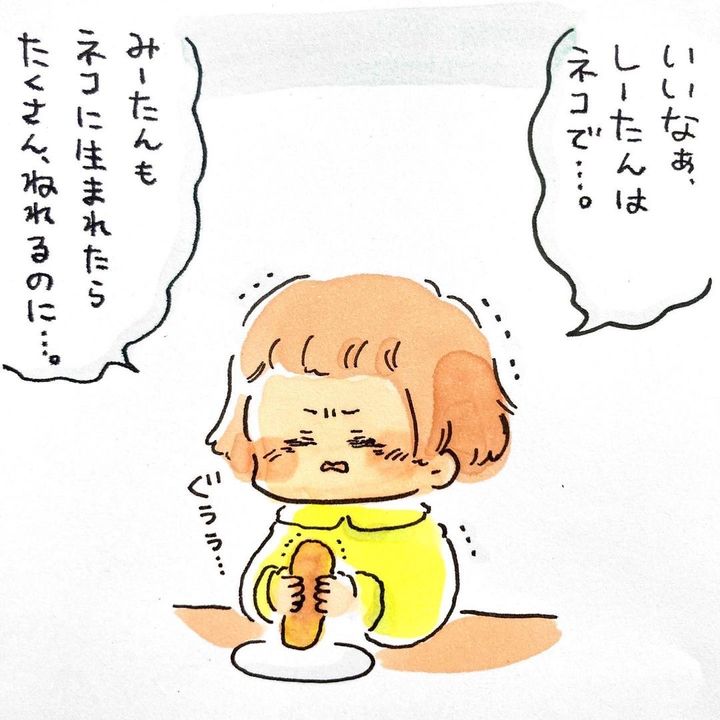 いいなぁ、
しーたんは
ネコで…。
みーたんも
ネコに生まれたら
たくさん、ねれるのに…。
ぐぅぅ…